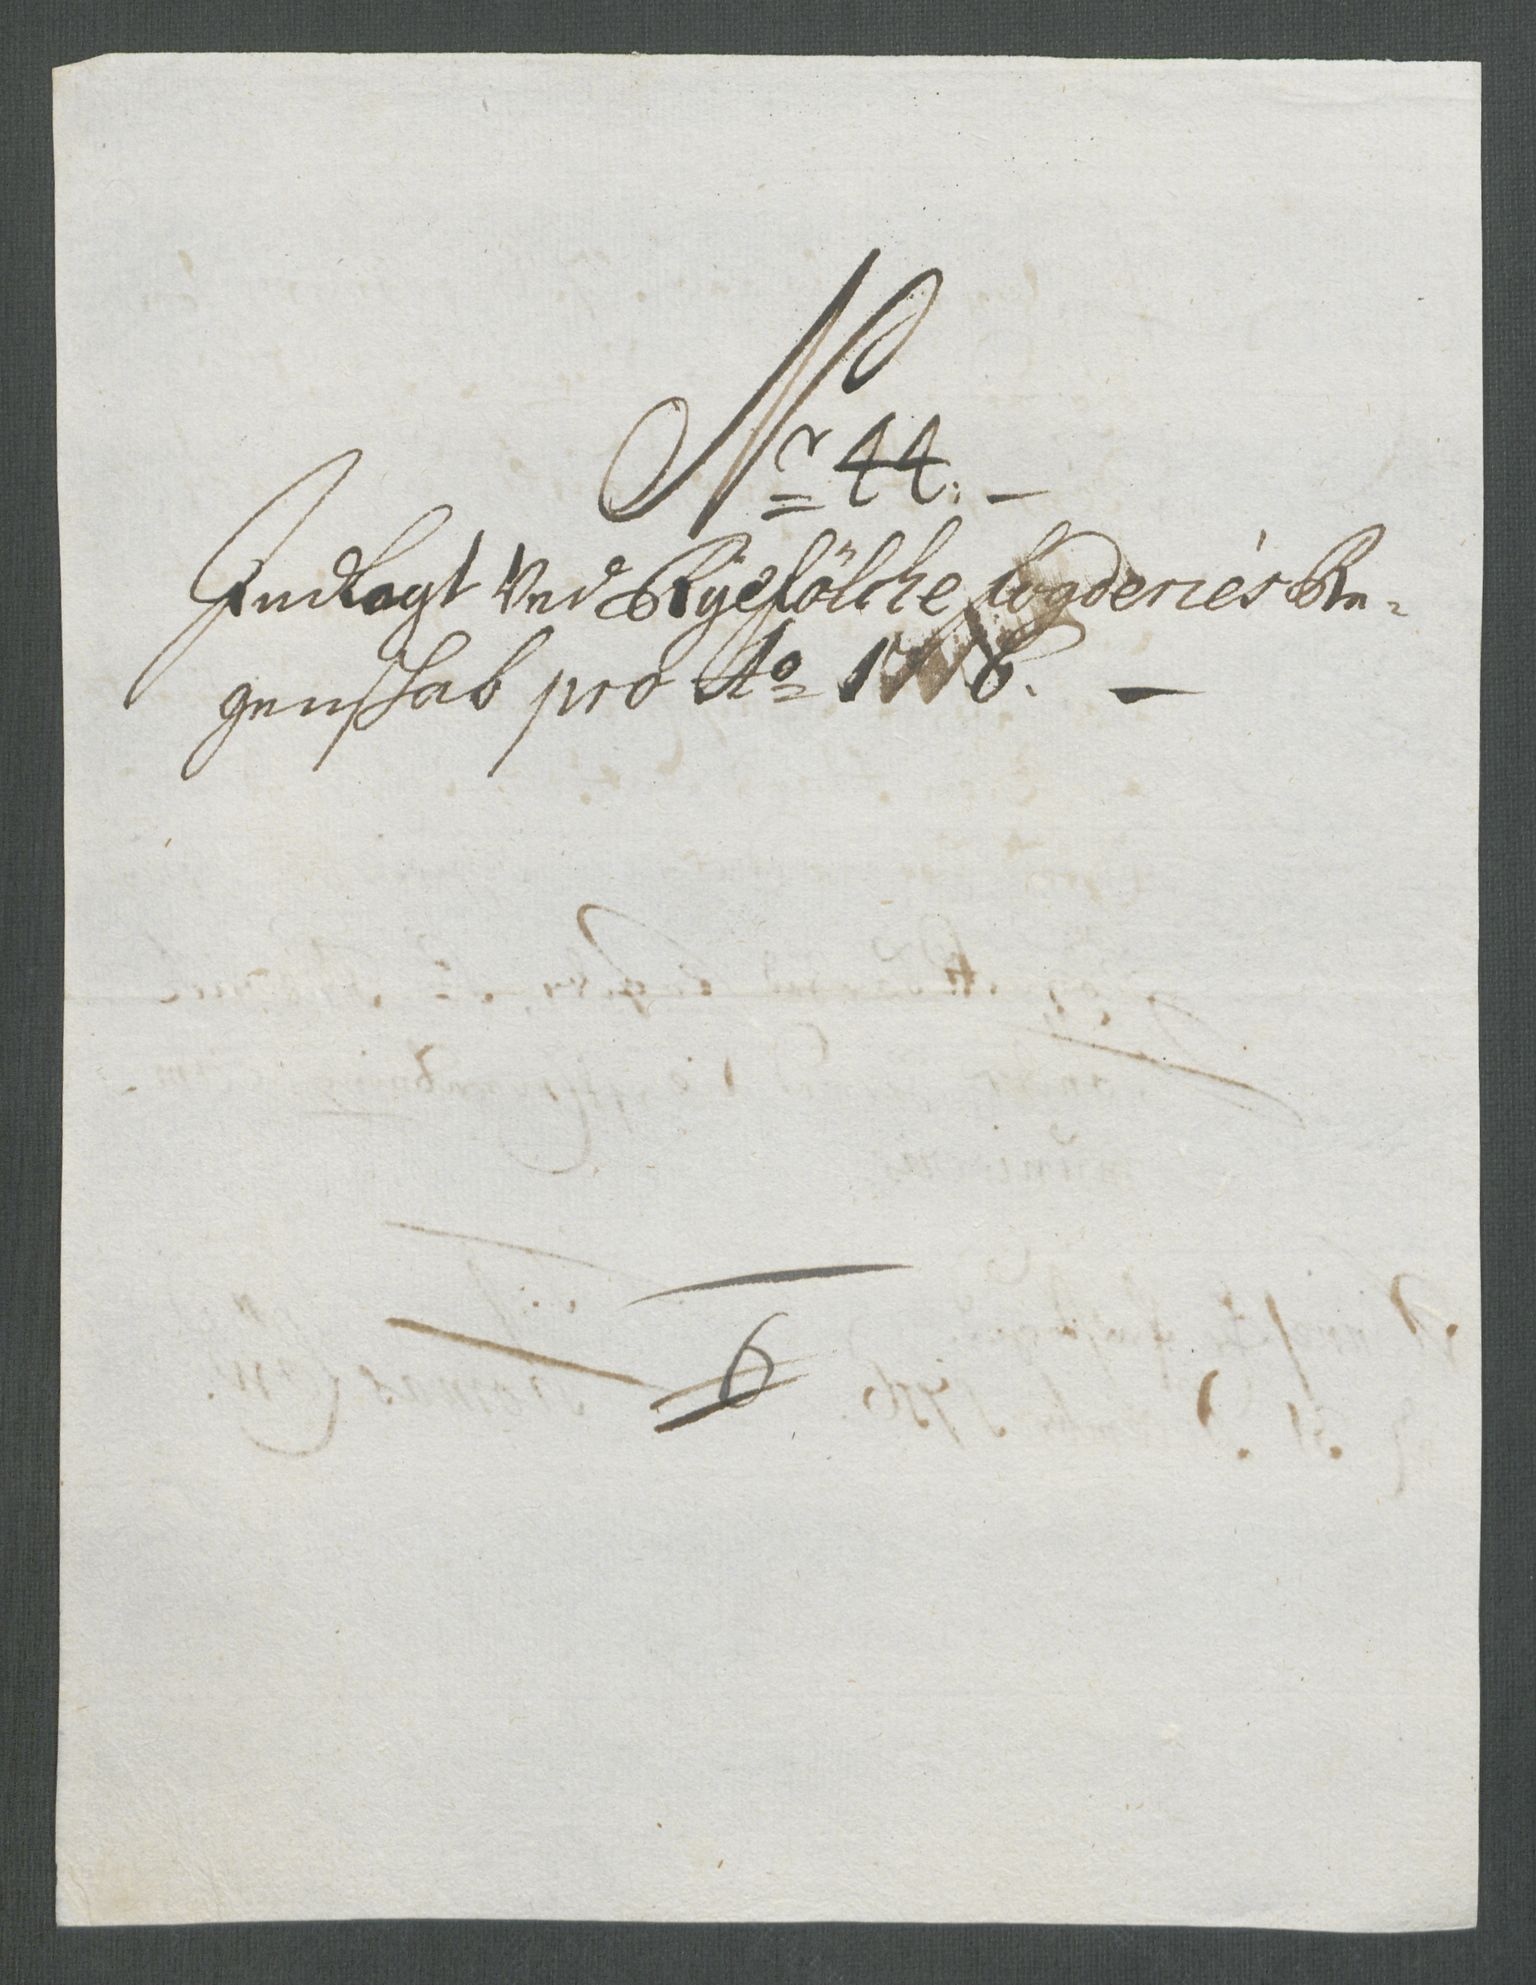 Nr 44. –
Indlagt Ved Ryefölche fogderies Re-
genskab pro Ao 1716. –
6